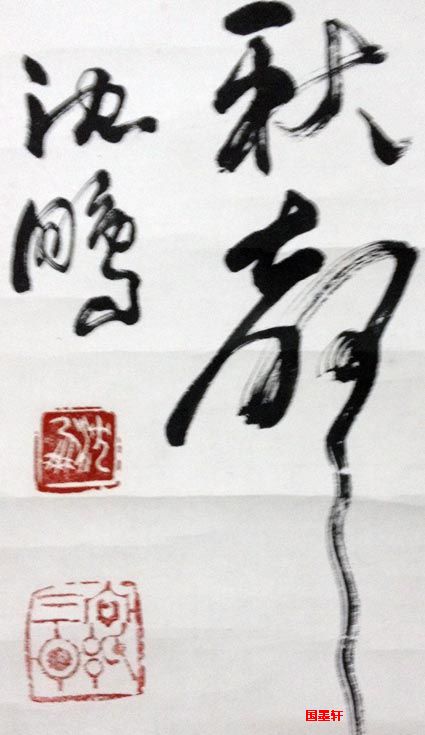 秋聲
沈鹏
国墨轩